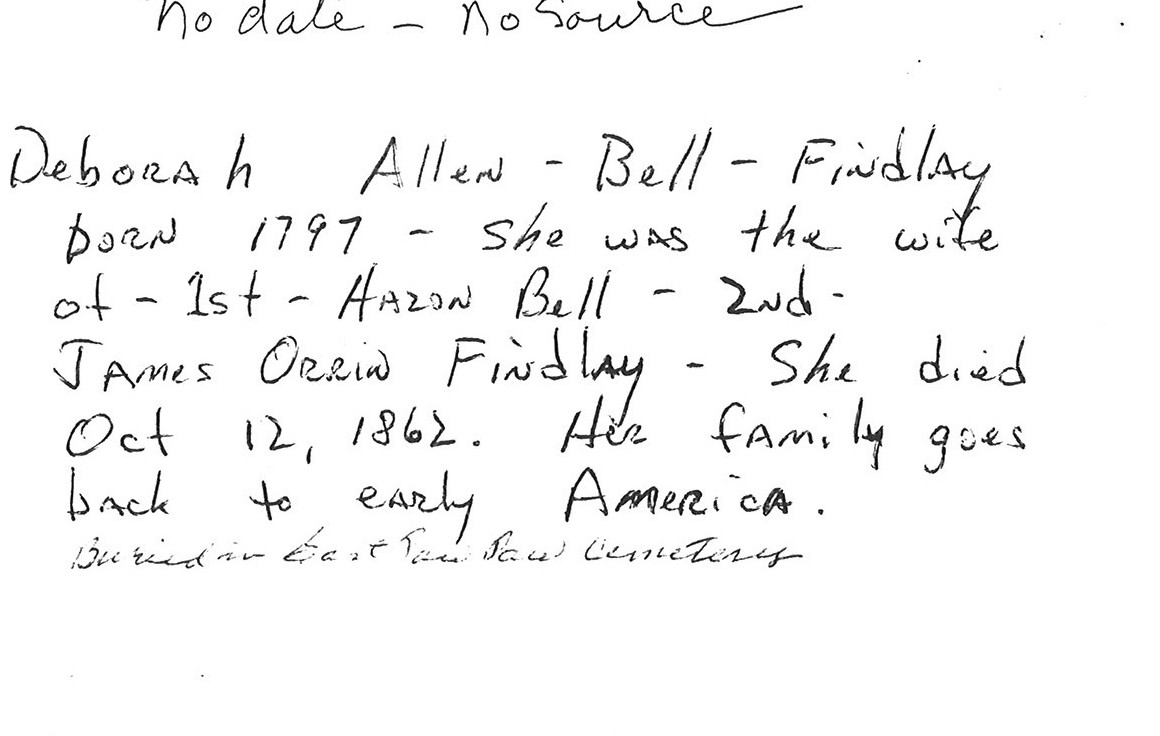 no date - no source
Deborah Allen - Bell - Findlay
born 1797 - she was the wife
of - 1st - Hazon Bell - 2nd -
James Orrin Findlay - She died
Oct 12, 1862. Her family goes
back to early America.
Buried in East Paw Paw Cemetery